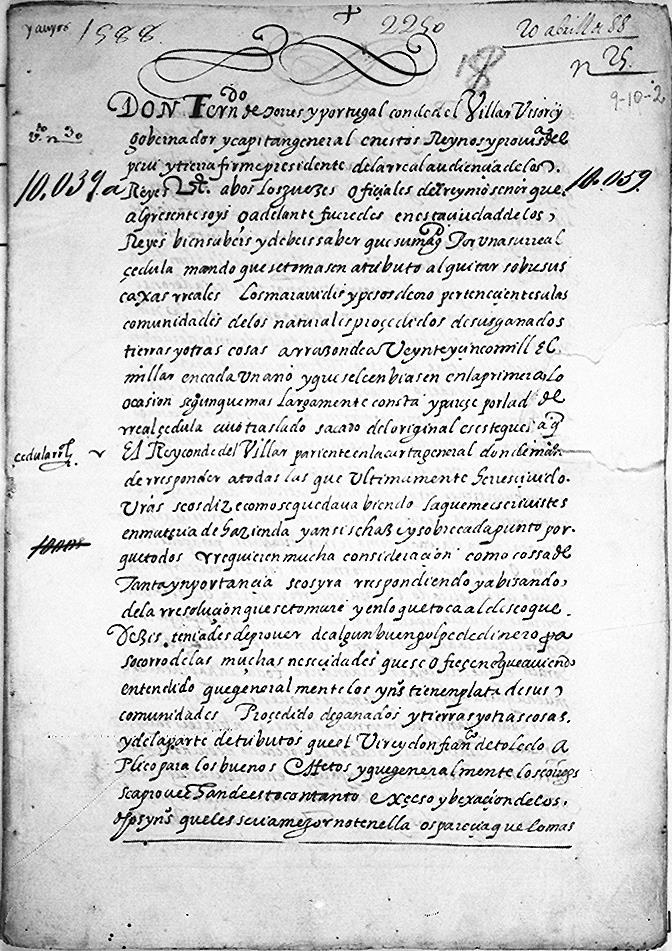 yauyos 1588. + 2250 20 abrill de 88
n 25.
9-10-2
DON Fern^do de torres y portugal conde del Villar Visorey
governador y capitan general en estos Reynos y provins del
v^to n 30
piru y tierra firme presidente de la real audiencia de los
10.039 a Reyes &c. a bos los juezes oficiales del rey mi señor que 10.059.
al presente soys o adelante fueredes en esta ciudad de los
Reyes bien sabeis y debeis saber que su mag Por una su real
çedula mando que se tomasen a tributo al quitar sobre sus
caxas rreales Los maravedis y pesos de oro perteneçientes a las
comunidades de los naturales proçedidos de sus ganados
tierras y otras cosas a rrazon de a Veynte y cinco mill El
millar en cada Un año y que se le enbiasen en la primera
ocasion segun que mas largamente consta y pareçe por la d^ha
rreal çedula cuio traslado sacado del original es este que
cedula rl El Rey conde del Villar pariente en la carta general donde
de responder a todas las que Ultimamente he resçivido
Vras se os dize como se quedava biendo la que me escrivistes
1000s en materia de hazienda y ansi se haze y sobre cada punto por
que todos rrequieren mucha consideraçion como cossa de
Tanta ynportançia se os yra rrespondiendo y abisando
de la rresoluçion que se tomare y en lo que toca al deseo que
Dezis teniades de prover de algun buen golpe de dinero pa
socorro de las muchas nesçesidades que se ofreçen e que aviendo
entendido que general mente los yn^os tienen plata de sus
comunidades Proçedido de ganados y tierras y otras cosas.
y de la parte de tributos que el Virey don fran^co de toledo A
Plico para los buenos Effetos y que general mente los
se aprovechan de esto con tanto exçeso y bexaçion de los
dhos yn^os que les seria mejor no tenella os pareçia que lo mas